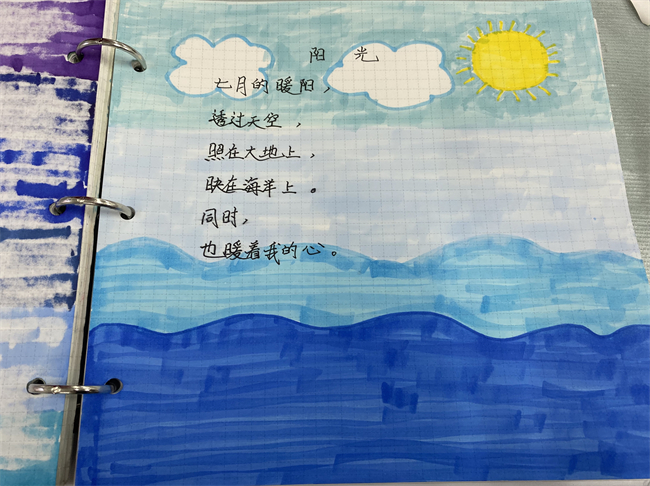 阳 光
七月的暖阳，
透过天空，
照在大地上，
映在海洋上。
同时，
也暖着我的心。